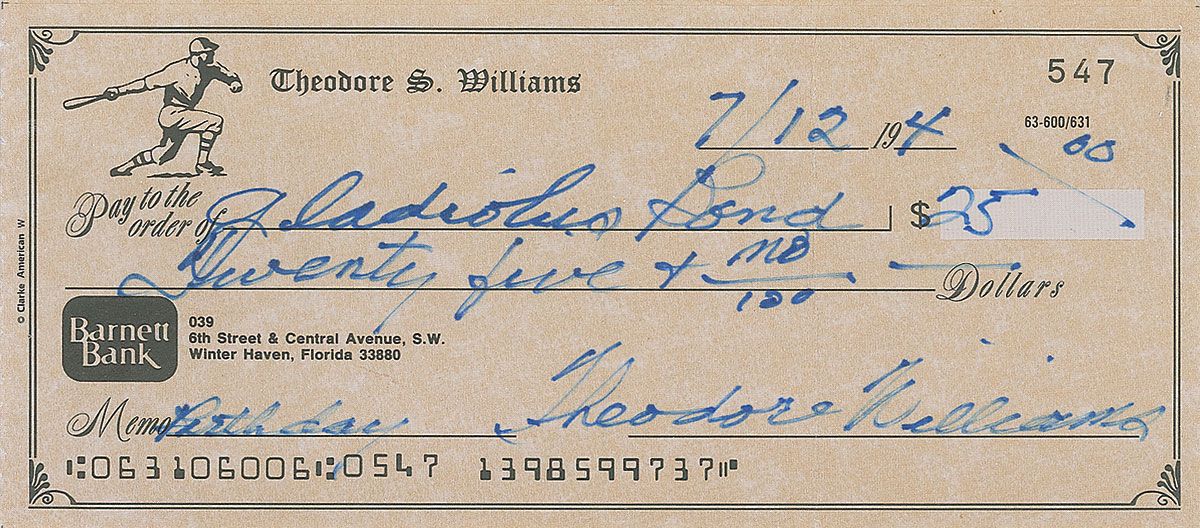 Theodore S. Williams
547
7/12 19 4
63-600/631
Pay to the order of Gladiolus Bond $ 25 00
Twenty five + no/100 Dollars
© Clarke American W
Barnett Bank
039
6th Street & Central Avenue, S.W.
Winter Haven, Florida 33880
Memo Birthday Theodore Williams
⑆063106006⑆0547 1398599737⑈